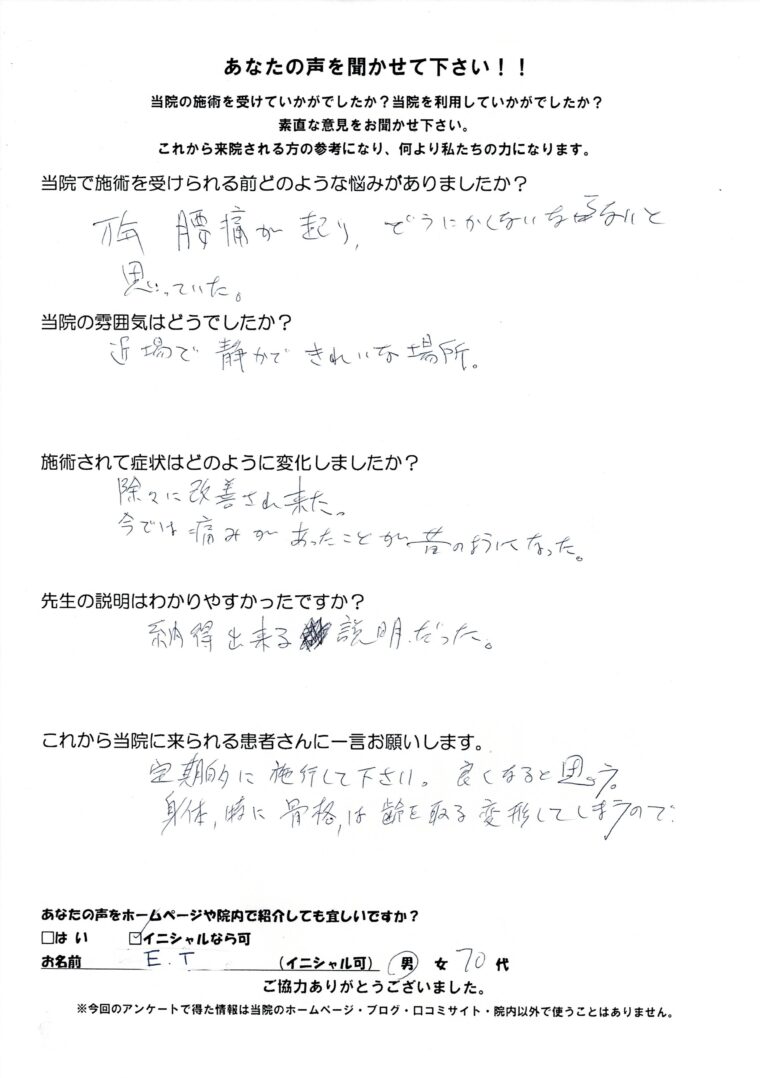 あなたの声を聞かせて下さい！！
当院の施術を受けていかがでしたか？当院を利用していかがでしたか？
素直な意見をお聞かせ下さい。
これから来院される方の参考になり、何より私たちの力になります。
当院で施術を受けられる前どのような悩みがありましたか？
腰痛が起り、どうにかくないならないと
思っていた。
当院の雰囲気はどうでしたか？
近場で静かできれいな場所。
施術されて症状はどのように変化しましたか？
除々に改善され来た。
今では痛みがあったことが昔のようになった。
先生の説明はわかりやすかったですか？
納得出来る説明だった。
これから当院に来られる患者さんに一言お願いします。
定期的に施行して下さい。良くなると思う。
身体,特に骨格,は齢を取る変形してしまうので
あなたの声をホームページや院内で紹介しても宜しいですか？
□はい ☑イニシャルなら可
お名前 E.T （イニシャル可） 男 女 70 代
ご協力ありがとうございました。
※今回のアンケートで得た情報は当院のホームページ・ブログ・口コミサイト・院内以外で使うことはありません。